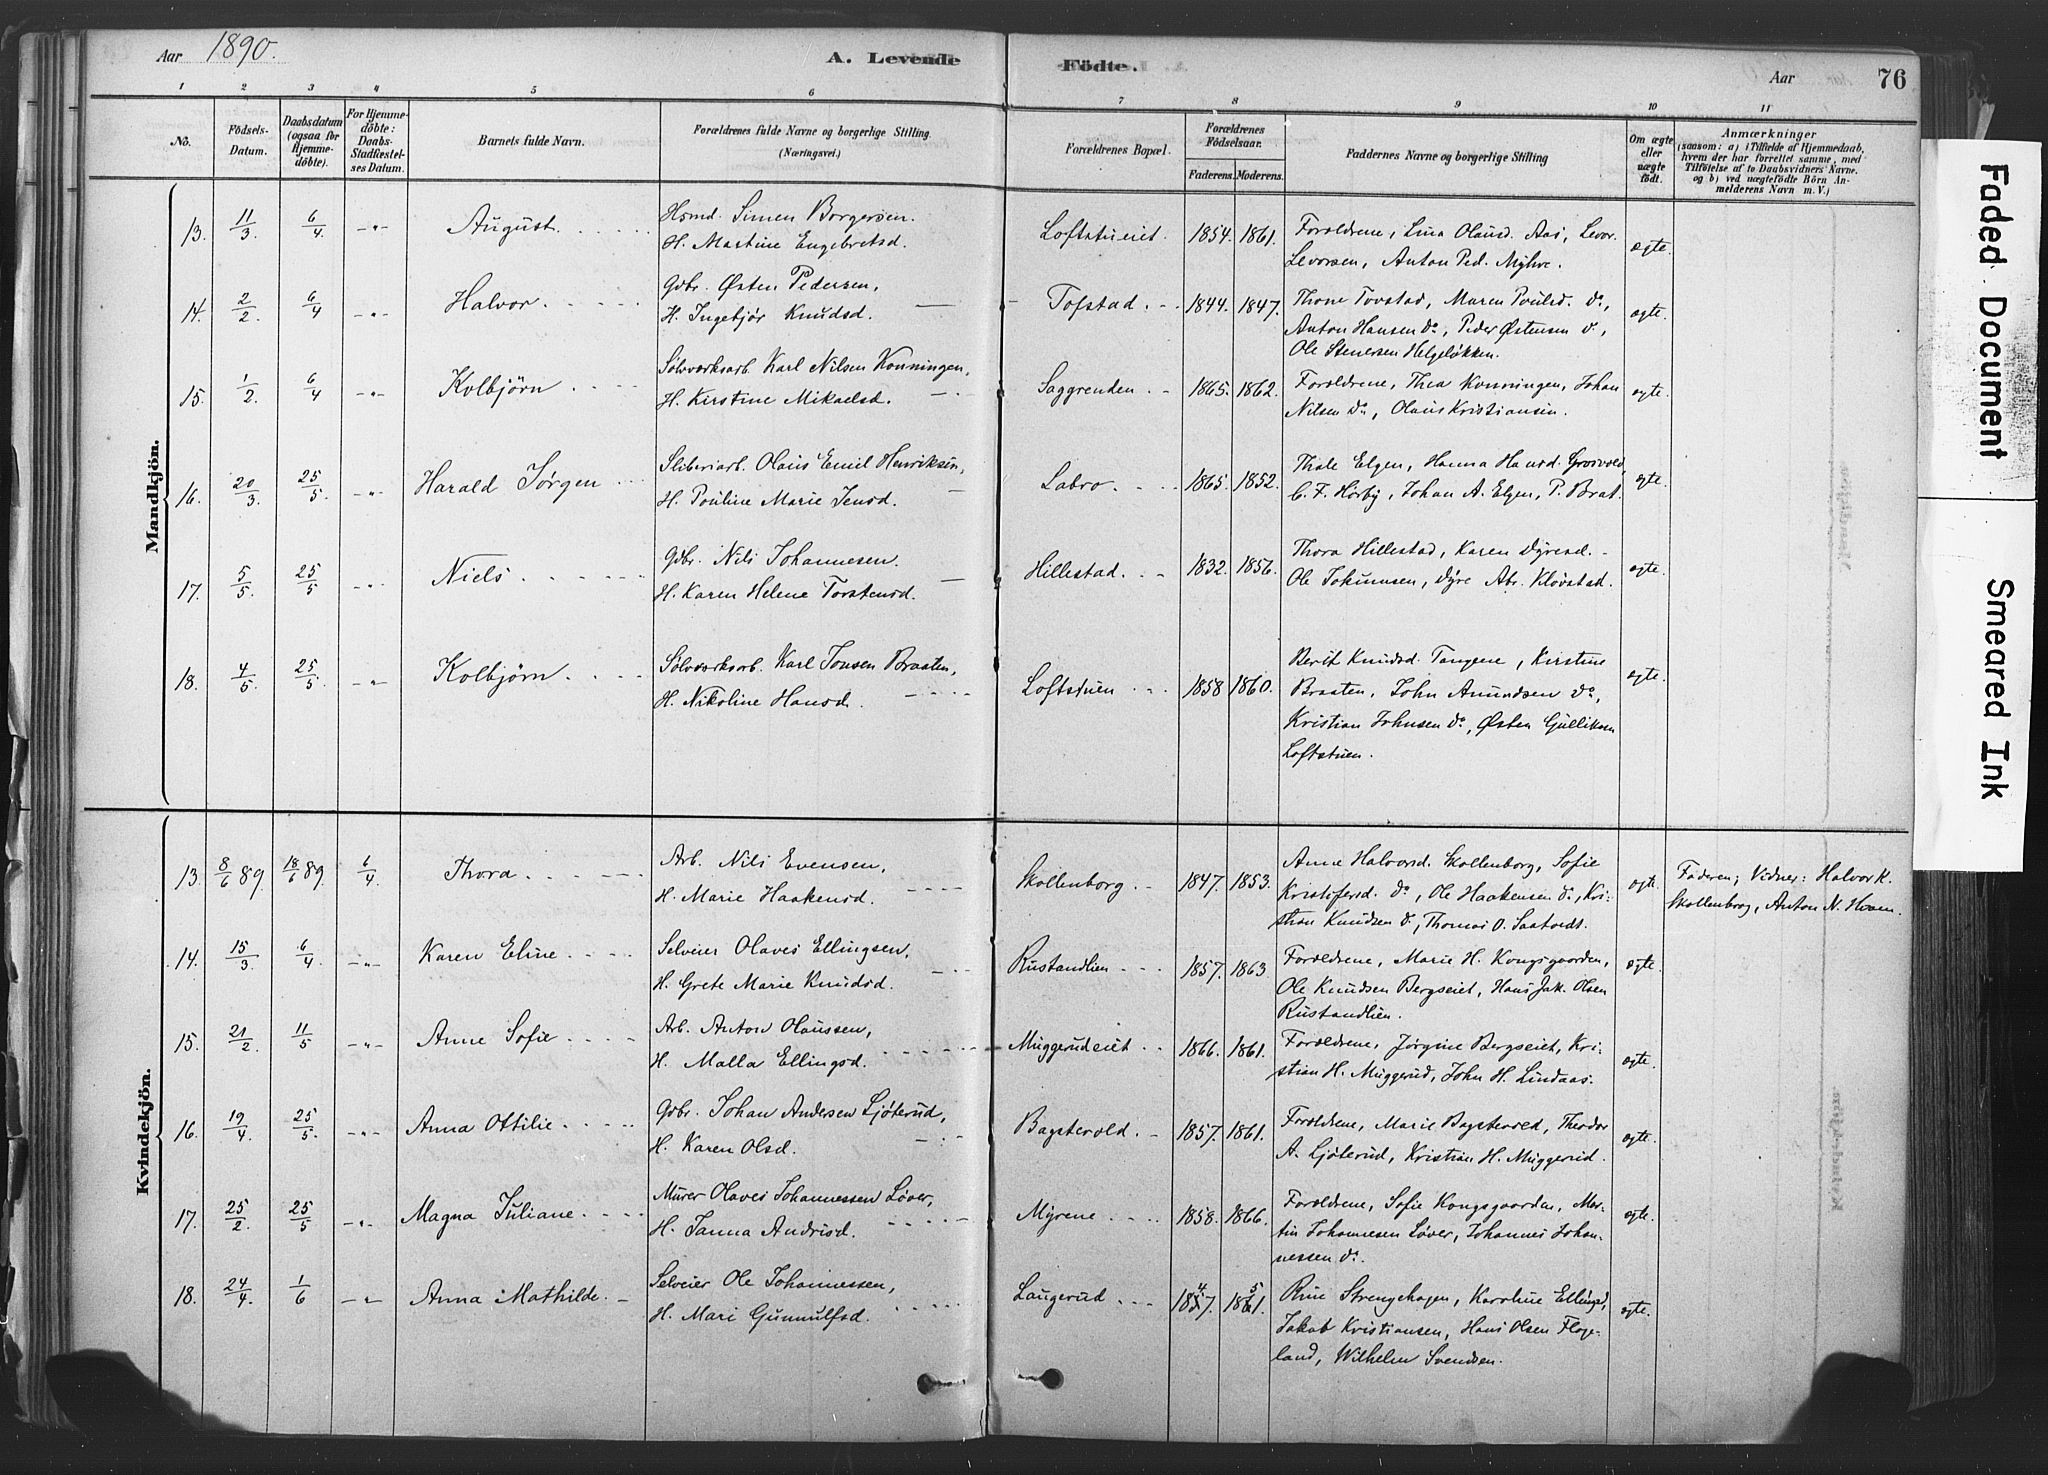 Aar 1890. A. Levende Födte. Aar 76
1 2 3 4 5 6 7 8 9 10 11
No. Födsels-Datum. Daabsdatum (ogsaa for Hjemmedöbte). For Hjemmedöbte: Daabs-Stadfæstelses Datum. Barnets fulde Navn. Forældrenes fulde Navne og borgerlige Stilling. (Næringsvei.) Forældrenes Bopæl. Forældrenes Födselsaar. Faderens. Moderens. Faddernes Navne og borgerlige Stilling Om ægte eller uægte födt. Anmærkninger (saasom: a) i Tilfælde af Hjemmedaab, hvem der har forrettet samme, med Tilföielse af to Daabsvidners Navne. og b) ved uægtefödte Börn Anmelderens Navn m. V.)
Mandkjön.
13. 11/3 6/4 -"- August Hsmd. Simen Borgersen. Loftstueiet. 1854. 1861. Forældrene, Lina Olausd. Aas, Levor
H. Martine Engebretsd. Levorsen, Anton Ped. Myhre. ægte.
14. 2/2 6/4 -"- Halvor Gdbr. Østen Pedersen, Tofstad. 1844. 1847. Thone Tovstad, Maren Poulsd. do,
H. Ingebjør Knudsd. Anton Hansen do, Peder Østensen do, ægte.
Ole Stenersen Helgeløkken.
15. 1/2 6/4 -"- Kolbjörn Sølvværksarb. Karl Nilsen Konningen, Saggrenden 1865. 1862. Forældrene, Thea Konningen, Johan ægte.
H. Kirstine Mikaelsd. Nilsen do, Olaus Kristiansen.
16. 20/3 25/5. -"- Harald Jørgen Sliberiarb. Olaus Emil Henriksen, Labro 1865. 1852. Thale Elgen, Hanna Hansd. Grosvold, ægte.
H. Pouline Marie Jensd. C. F. Hørby, Johan A. Elgen, P. Brat.
17. 5/5. 25/5 -"- Niels Gdbr. Nils Johannesen. Hillestad. 1832. 1856. Thora Hillestad, Karen Dyresd. ægte.
H. Karen Helene Torstensd. Ole Johnnsen, Dyre Abr. Kløvstad.
18. 4/5. 25/5. -"- Kolbjörn Sølvværksarb. Karl Jonsen Braaten, Loftstuen 1858 1860. Berit Knudsd. Tangene, Kirstine ægte.
H. Nikoline Hansd. Braaten, John Amundsen do,
Kristian Johnsen do, Østen Gulliksen
Loftstuen.
Kvindekjön.
13. 8/6 89. 18/6 89. 6/4 Thora Arb. Nils Evensen, Skollenborg 1847. 1853. Anne Halvorsd. Skollenborg, Sofie ægte. Faderen; Vidner: Halvor K.
H. Marie Haakensd. Kristofersd. do, Ole Haakensen do, Kri- Skollenborg, Anton N. Hvam.
stian Knudsen do, Thomas O. Saatvedt.
14. 15/3. 6/4 -"- Karen Eline Selveier Olaves Ellingsen, Rustandlien 1857. 1863 Forældrene, Marie H. Kongsgaarden, ægte.
H. Grete Marie Knudsd. Ole Knudsen Bergseiet, Hans Jak. Olsen
Rustandlien.
15. 21/2. 11/5 -"- Anne Sofie Arb. Anton Olaussen, Muggerudeiet 1866. 1861. Forældrene, Jørgine Bergseiet, Kri-
H. Malla Ellingsd. stian H. Muggerud, John H. Lindaas. ægte.
16. 19/4. 25/5. -"- Anna Ottilie Gdbr. Johan Andersen Ljøterud, Bagstevold 1857. 1861. Forældrene, Marie Bagstevold, Theodor ægte.
H. Karen Olsd. A. Ljøterud, Kristian H. Muggerud.
17. 25/2. 25/5 -"- Magna Juliane Murer Olaves Johannessen Løver, Myrene 1858. 1866. Forældrene, Sofie Kongsgaarden, Mar- ægte.
H. Janna Andrisd. tin Johannesen Løver, Johannes Johan-
nessen do.
18. 24/4. 1/6 -"- Anna Mathilde. Selveier Ole Johannessen, Laugerud 1847. 1851. Rine Strengehagen, Karoline Ellingsd, ægte.
H. Mari Gunnulfsd. Jakob Kristiansen, Hans Olsen Flage-
land, Wilhelm Svendsen.
Faded Document
Smeared Ink